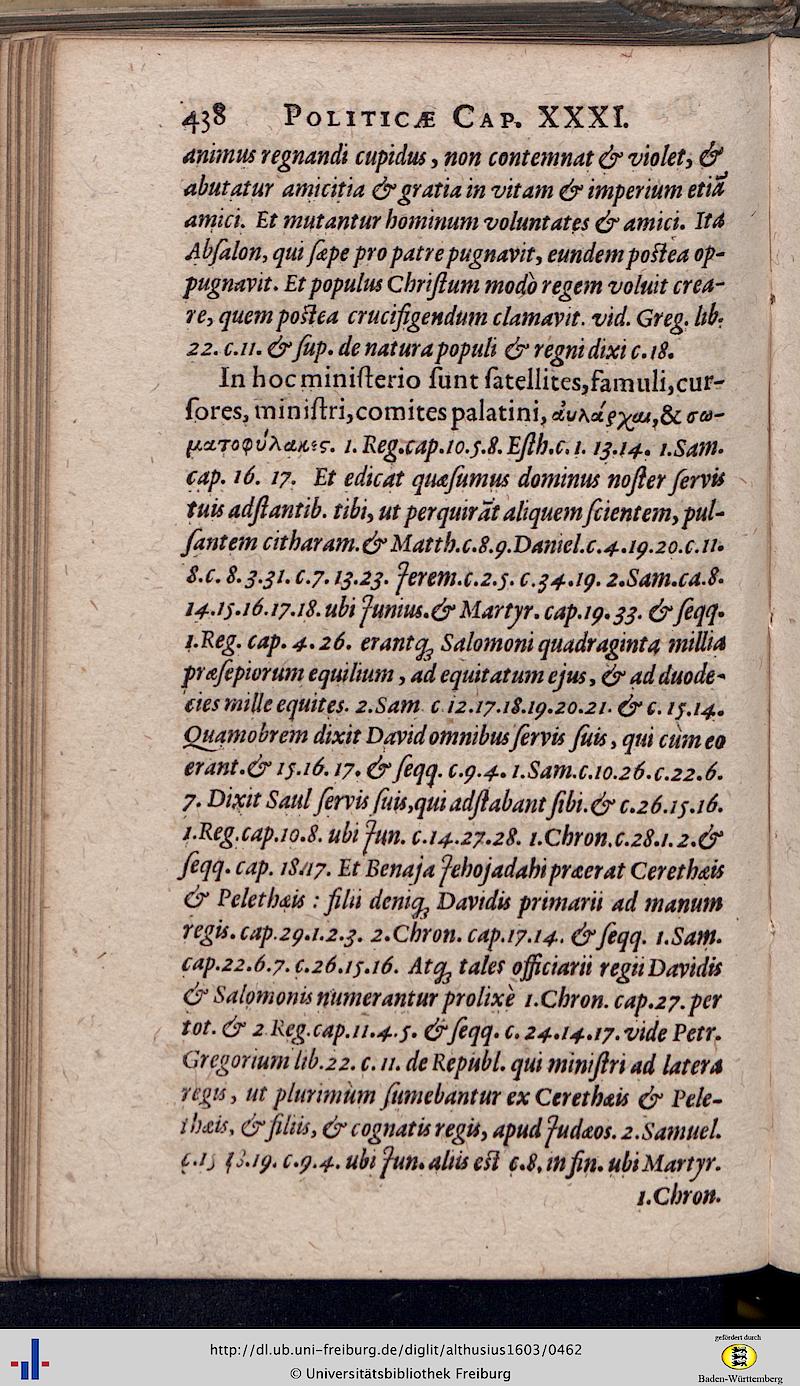 438 POLITICÆ CAP. XXXI.
animus regnandi cupidus, non contemnat & violet, &
abutatur amicitia & gratia in vitam & imperium etiã
amici. Et mutantur hominum voluntates & amici. Ita
Abſalon, qui ſæpe pro patre pugnavit, eundem poſtea op-
pugnavit. Et populus Chriſtum modò regem voluit crea-
re, quem poſtea crucifigendum clamavit. vid. Greg. lib.
22. c.11. & ſup. de natura populi & regni dixi c.18.
In hoc miniſterio ſunt ſatellites, famuli, cur-
ſores, miniſtri, comites palatini, ἀυλάρχαι, & σω-
ματοφύλακες. 1. Reg. cap. 10.5.8. Eſth. c. 1. 13.14. 1. Sam.
cap. 16. 17. Et edicat quæſumus dominus noſter ſervis
tuis adſtantib. tibi, ut perquirãt aliquem ſcientem, pul-
ſantem citharam. & Matth. c.8.9. Daniel. c.4.19.20. c.11.
8. c. 8. 3.31. c.7. 13.23. Jerem. c.2.5. c.34.19. 2. Sam. ca.8.
14.15.16.17.18. ubi Junius. & Martyr. cap.19.33. & ſeqq.
1. Reg. cap. 4.26. erantq; Salomoni quadraginta millia
præſepiorum equilium, ad equitatum ejus, & ad duode-
cies mille equites. 2. Sam c 12.17.18.19.20.21. & c. 15.14.
Quamobrem dixit David omnibus ſervis ſuis, qui cùm eo
erant. & 15.16.17. & ſeqq. c.9.4. 1. Sam. c.10.26. c.22.6.
7. Dixit Saul ſervis ſuis, qui adſtabant ſibi. & c.26.15.16.
1. Reg. cap. 10.8. ubi Jun. c.14.27.28. 1. Chron. c.28.1.2. &
ſeqq. cap. 18.17. Et Benaja Jehojadahi præerat Cerethæis
& Pelethæis : filii deniq; Davidis primarii ad manum
regis. cap. 29.1.2.3. 2. Chron. cap. 17.14. & ſeqq. 1. Sam.
cap. 22.6.7. c.26.15.16. Atq; tales officiarii regii Davidis
& Salomonis numerantur prolixè 1. Chron. cap. 27. per
tot. & 2 Reg. cap. 11.4.5. & ſeqq. c. 24.14.17. vide Petr.
Gregorium lib. 22. c. 11. de Republ. qui miniſtri ad latera
regis, ut plurimùm ſumebantur ex Cerethæis & Pele-
thæis, & filiis, & cognatis regis, apud Judæos. 2. Samuel.
c.15 18.19. c.9.4. ubi Jun. aliis eſt c.8. in fin. ubi Martyr.
1. Chron.
http://dl.ub.uni-freiburg.de/diglit/althusius1603/0462
© Universitätsbibliothek Freiburg
gefördert durch
Baden-Württemberg